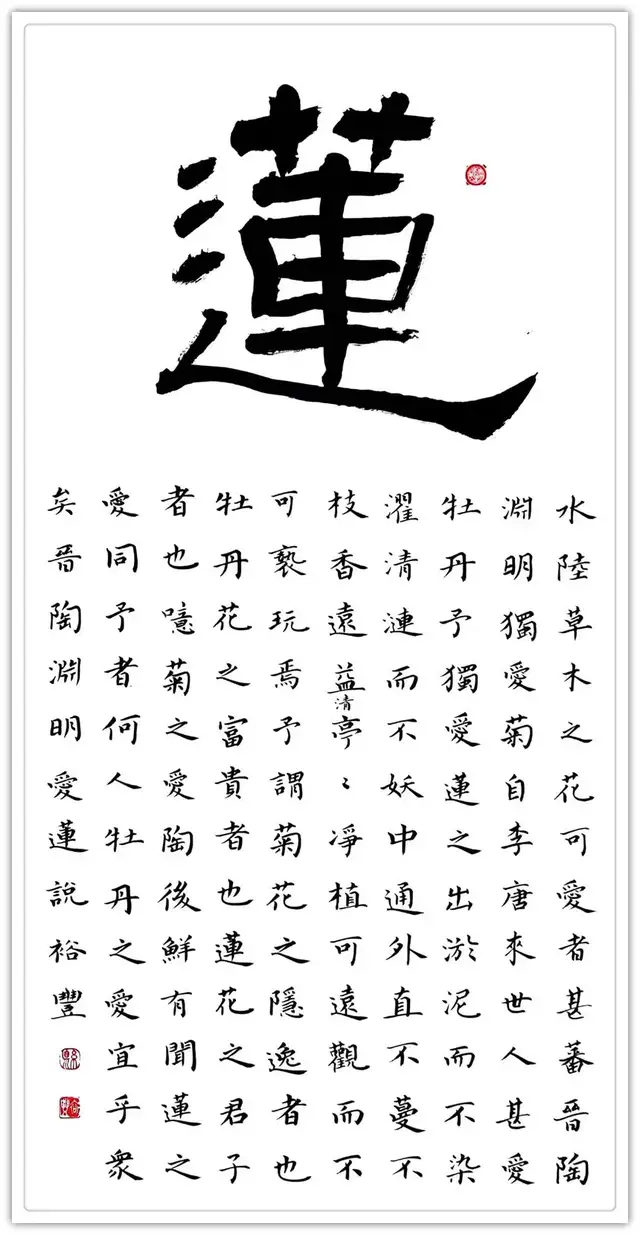 蓮
水陸草木之花可愛者甚蕃晉陶
淵明獨愛菊自李唐來世人甚愛
牡丹予獨愛蓮之出淤泥而不染
濯清漣而不妖中通外直不蔓不
枝香遠益清亭〻凈植可遠觀而不
可褻玩焉予謂菊花之隱逸者也
牡丹花之富貴者也蓮花之君子
者也噫菊之愛陶後鮮有聞蓮之
愛同予者何人牡丹之愛宜乎衆
矣晉陶淵明愛蓮說裕豐